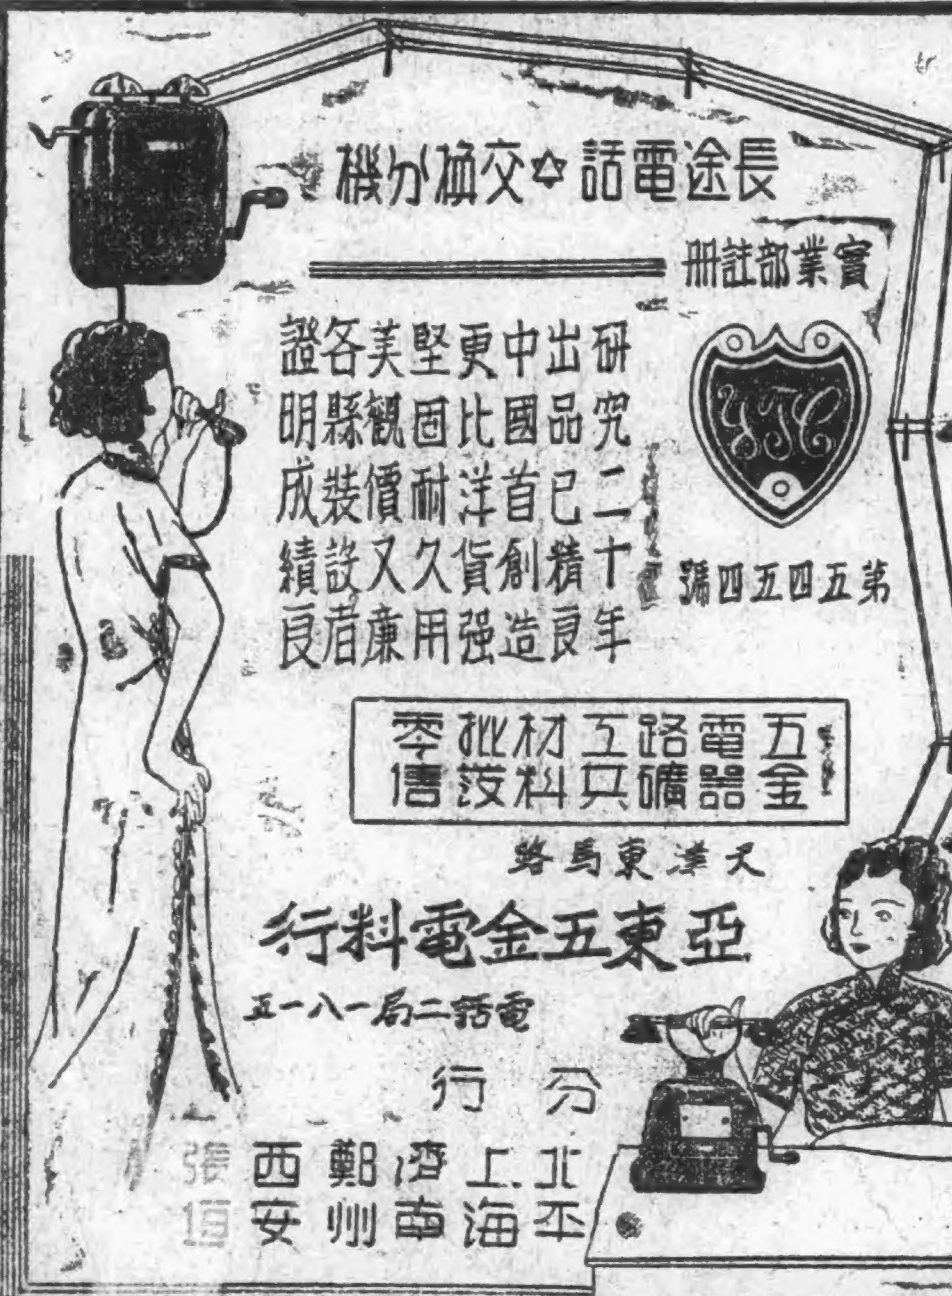 長途電話✡交換分機
實業部註冊
YTC
第五四五四號
研究二十年
出品已精良
中國首創造
更比洋貨強
堅固耐久用
美觀價又廉
各縣裝設者
證明成績良
五金
電器
路礦
工具
材料
批發
零售
天津東馬路
亞東五金電料行
電話二局一八一五
分行
北平
上海
濟南
鄭州
西安
張垣